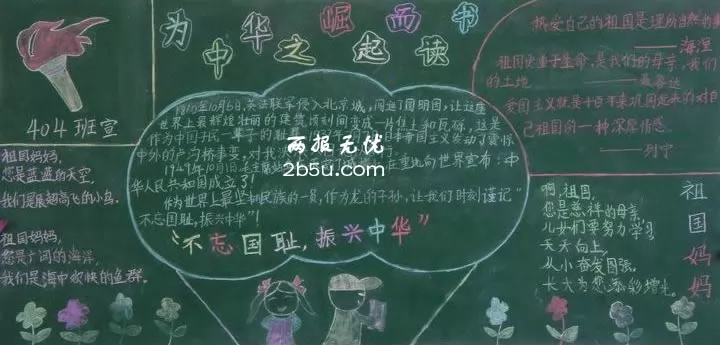 为中华之崛起而读书
404班宣
祖国妈妈,
您是蓝蓝的天空,
我们是展翅高飞的小鸟。
祖国妈妈,
您是广阔的海洋,
我们是海中欢快的鱼群。
1860年10月6日,英法联军侵入北京城,闯进了圆明园,让这座
世界上最辉煌壮丽的建筑顷刻间变成一片焦土和瓦砾,这是
作为中国子民一辈子的耻
国主义发动了震惊
中外的卢沟桥事变,对我
重地向世界宣布:中
华人民共和国成立了!
作为世界上最坚和民族的一员,作为龙的子孙,让我们时刻谨记"
不忘国耻,振兴中华"!
"不忘国耻,振兴中华"
两报无忧
2b5u.com
热爱自己的祖国是理所当然的事
——海涅
祖国使生命,是我们的母亲,我们
的土地
——聂鲁达
爱国主义就是千百年来巩固起来的对自
己祖国的一种深厚情感。
——列宁
祖国妈妈
啊,祖国,
您是慈祥的母亲,
儿女们要努力学习
天天向上,
从小奋发图强。
长大为您添彩增光。